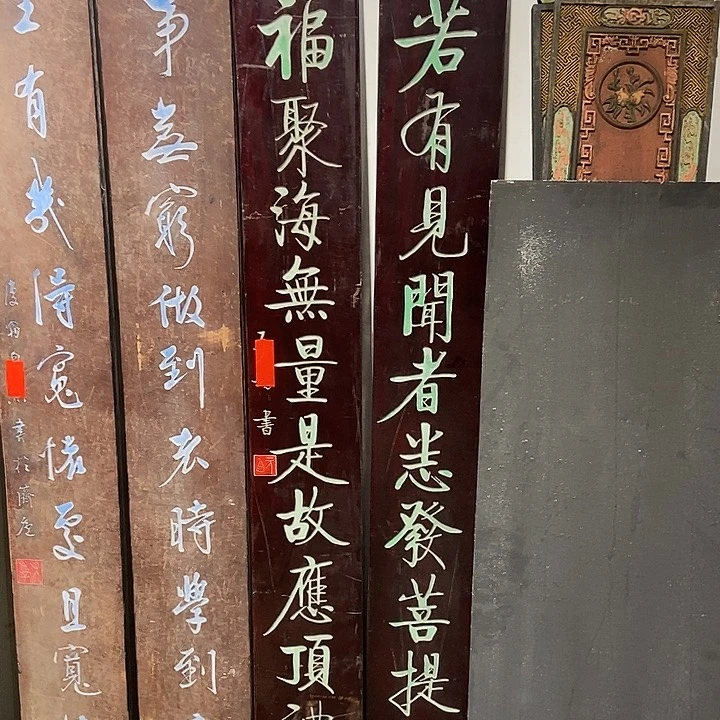 若有見聞者悉發菩提
福聚海無量是故應頂禮
書
事無窮做到老時學到
生有幾得寬懷處且寬
書於